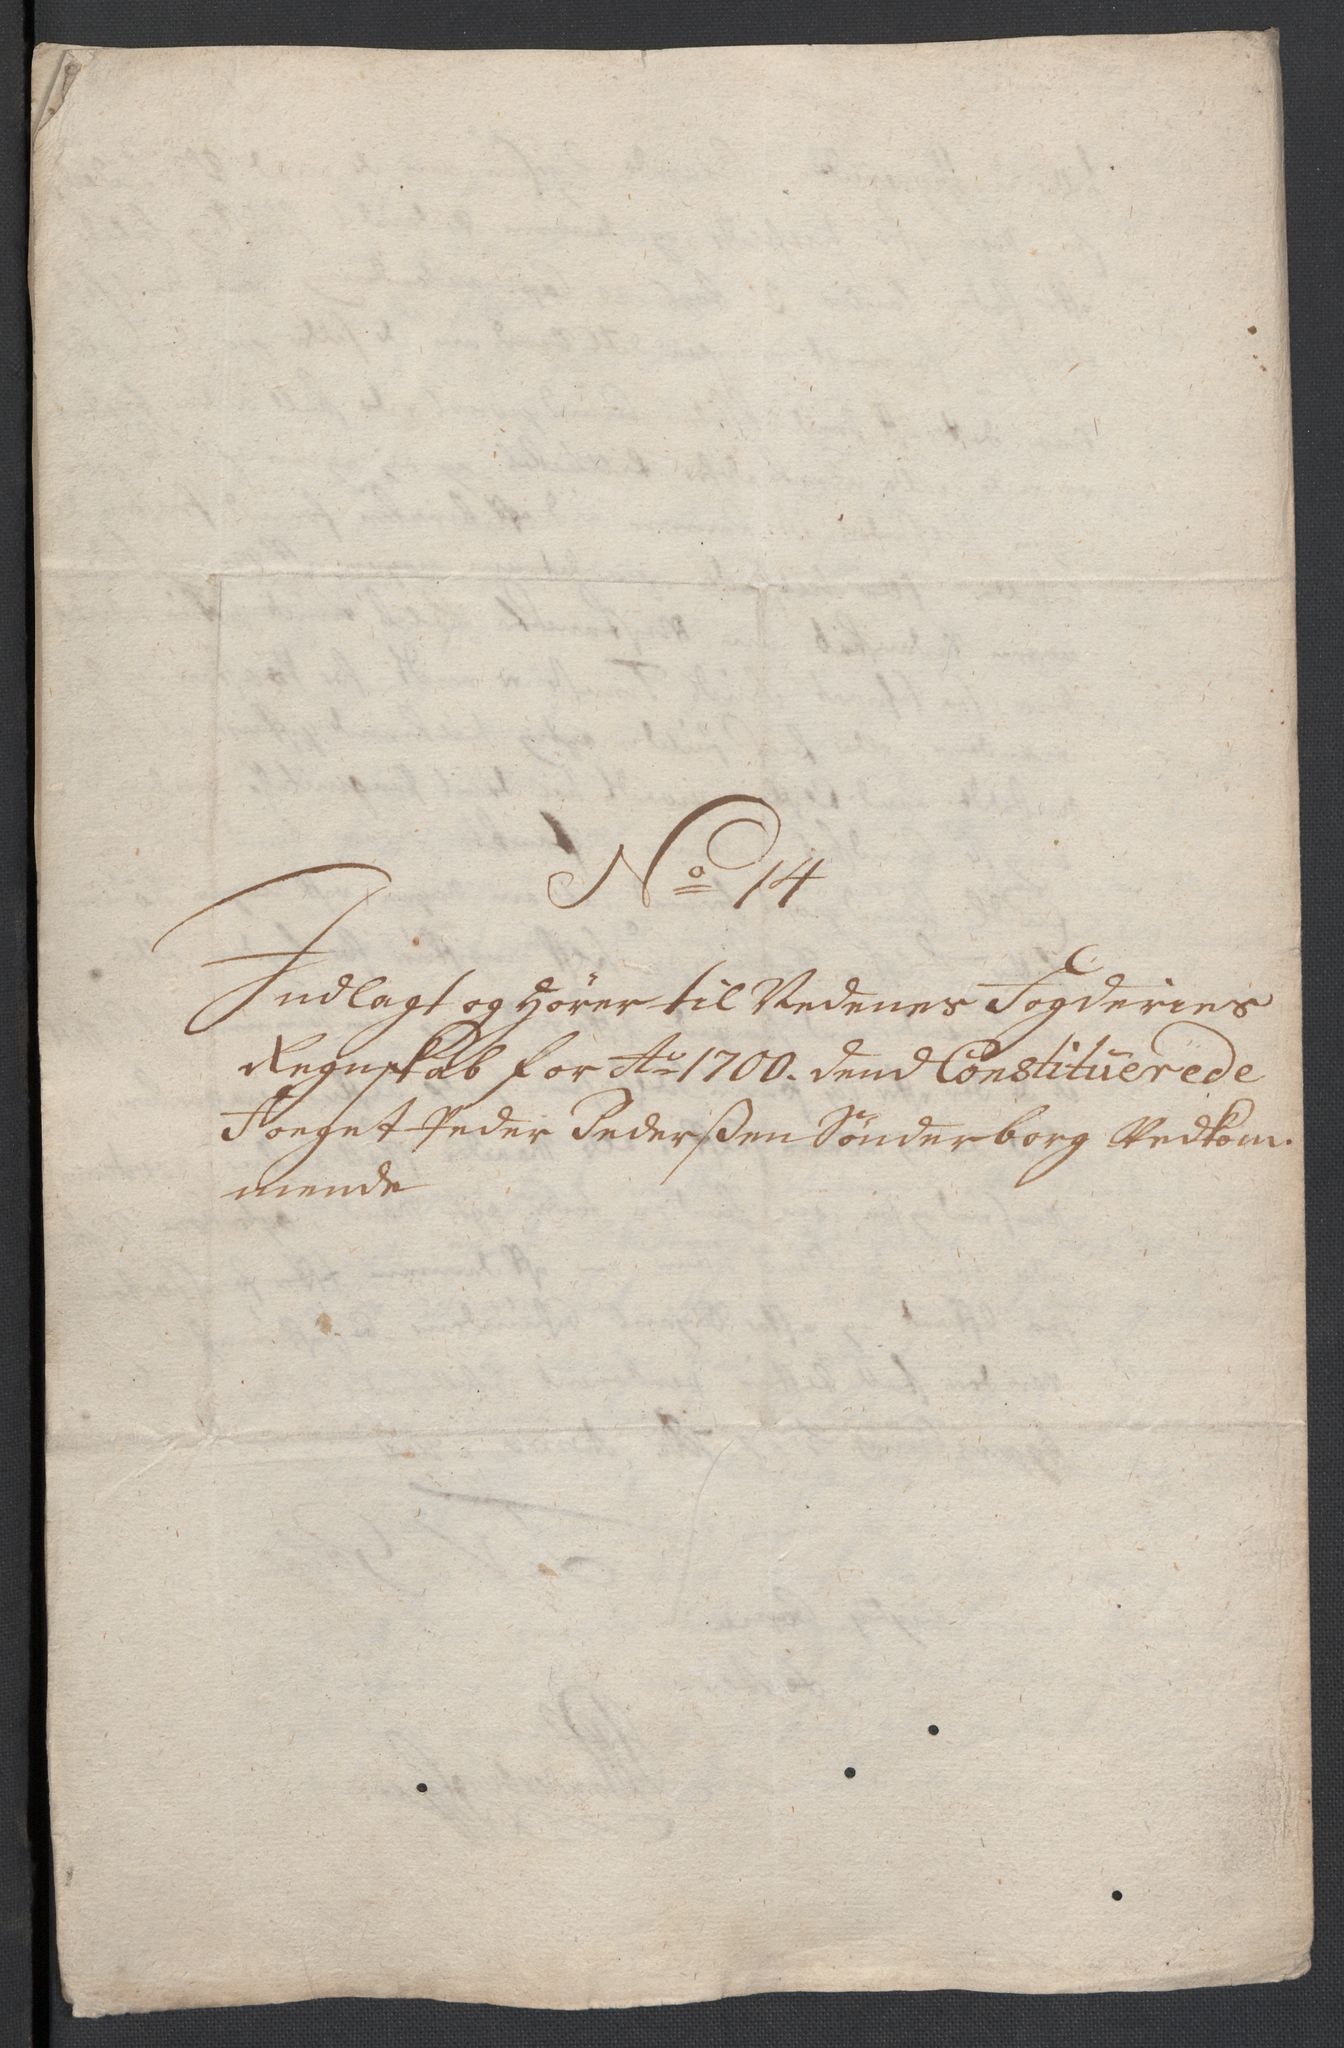 No 14
Indlagt og Hører til Nedenes Fogderies
Regnskab for Ao 1700. dend Constituerede
Foeget Peder Pederßen Sønderborg Vedkom-
mende